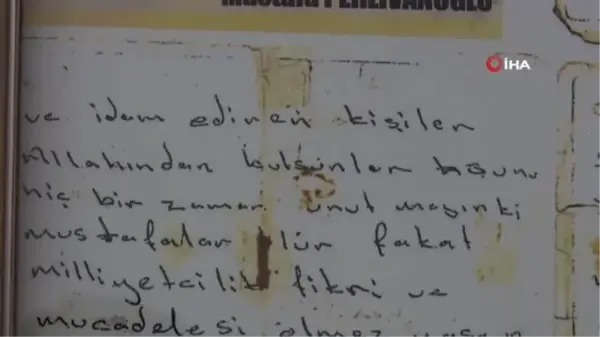 Mustafa PEHLİVANOĞLU
İHA
ve idam edinen kişiler
Allahından bulsunlar bunu
hiç bir zaman unut mayınki
mustafalar lür fakat
milliyetcilik fikri ve
mucadelesi ölmez